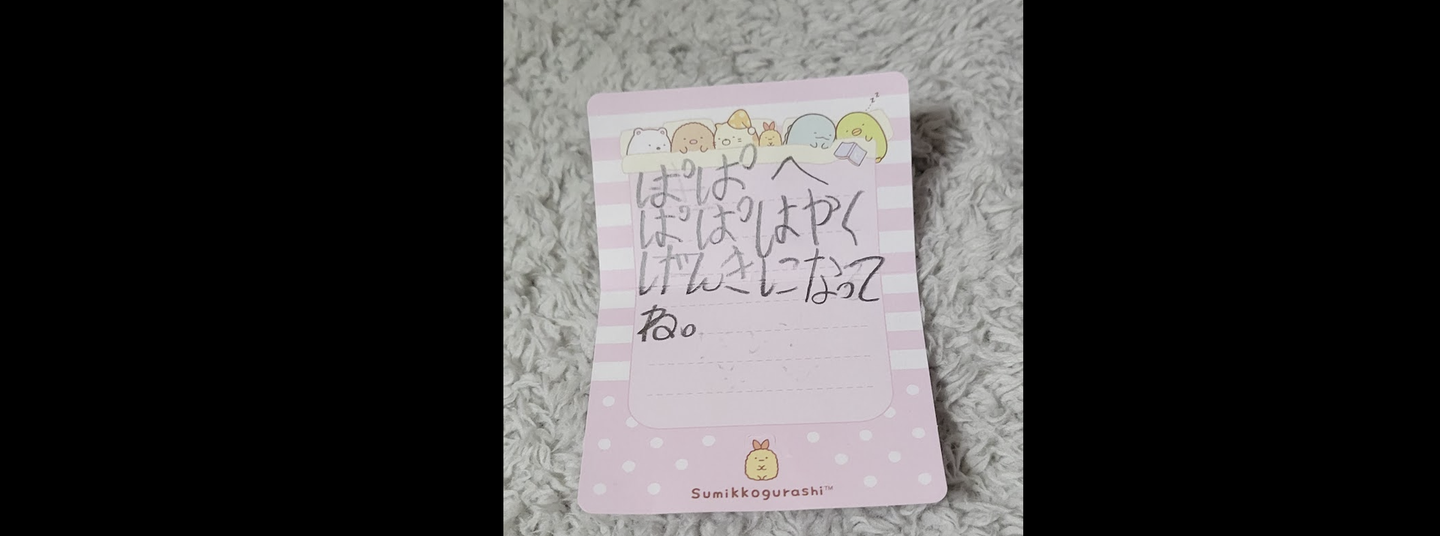 zz
ぱぱへ
ぱぱはやく
げんきになって
ね。
Sumikkogurashi™